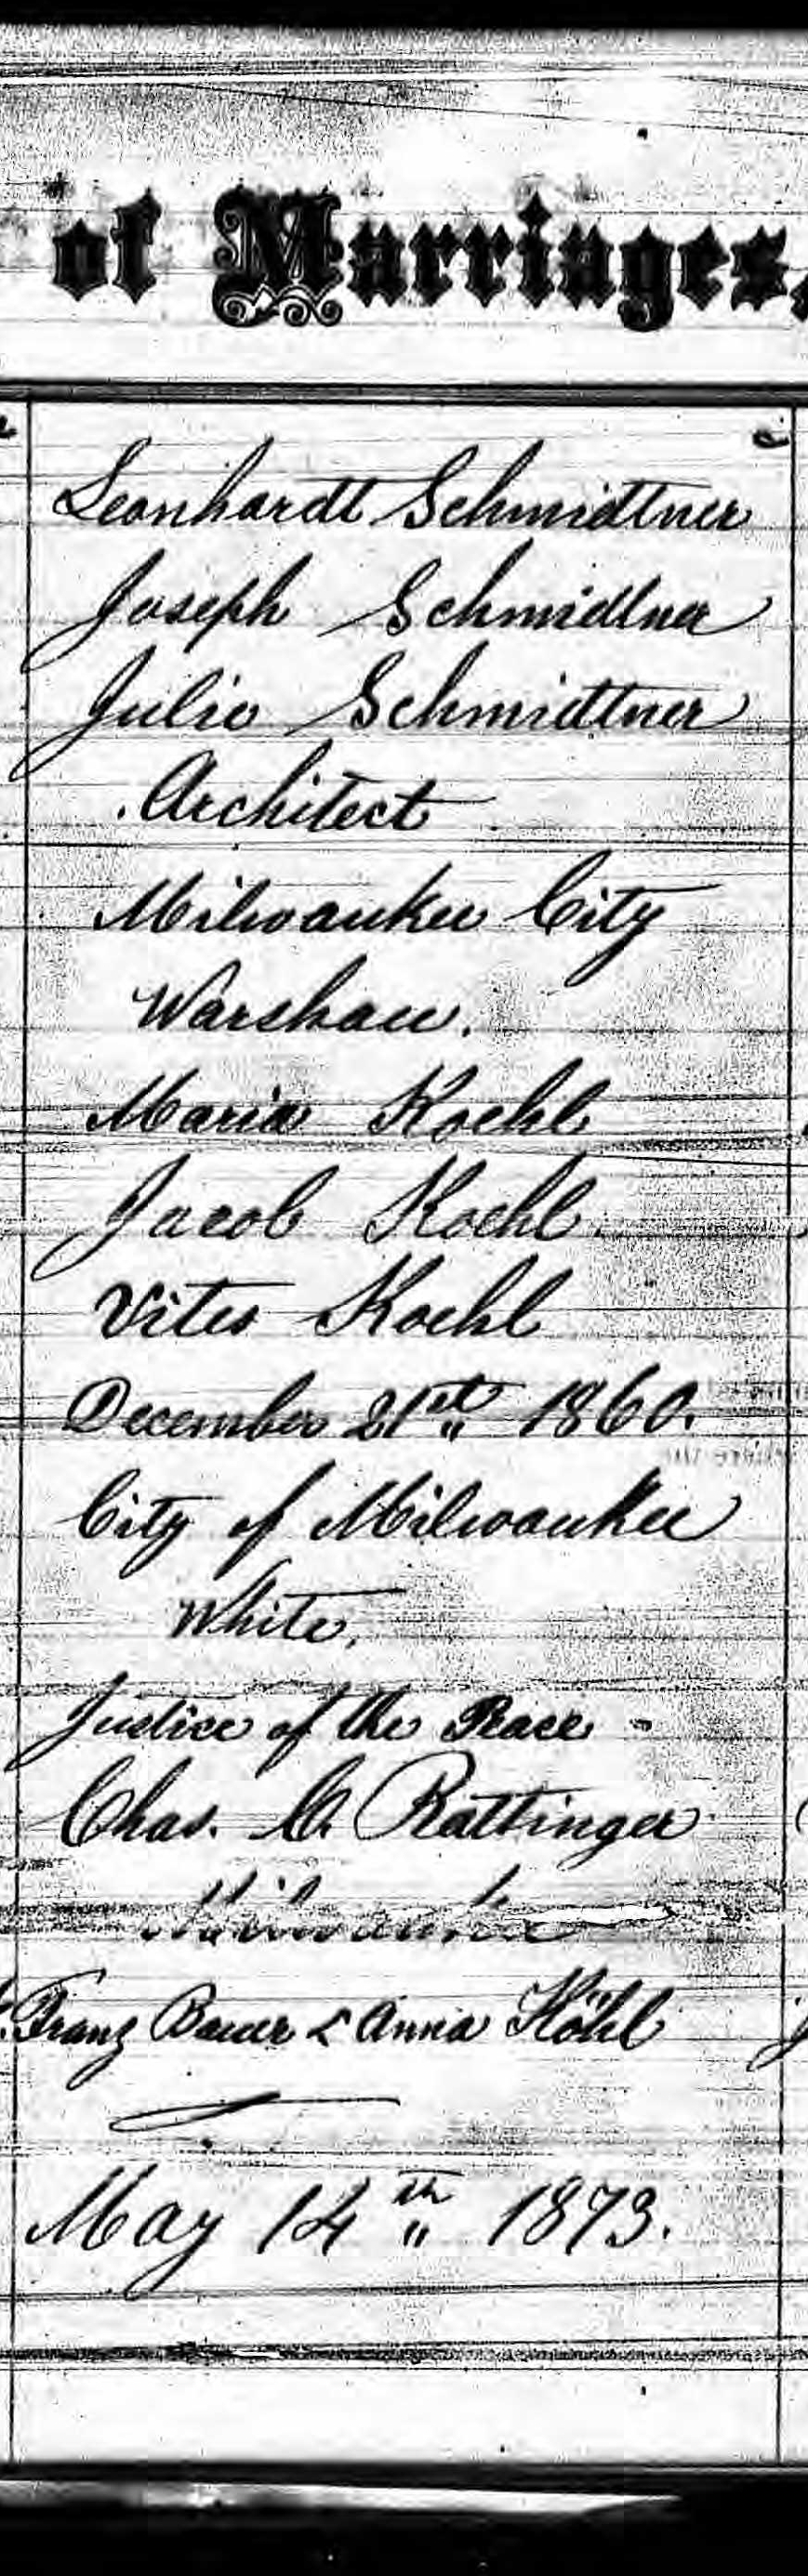 of Marriages,
Leonhardt Schmidtner
Joseph Schmidtner
Julie Schmidtner
Architect
Milwaukee City
Warshau.
Maria Koehl
Jacob Koehl.
Vites Koehl
December 21st 1860.
City of Milwaukee
White.
Justice of the Peace -
Chas. C. Rattinger
Milwaukee
Franz Bauer & Anna Köhl
May 14th 1873.